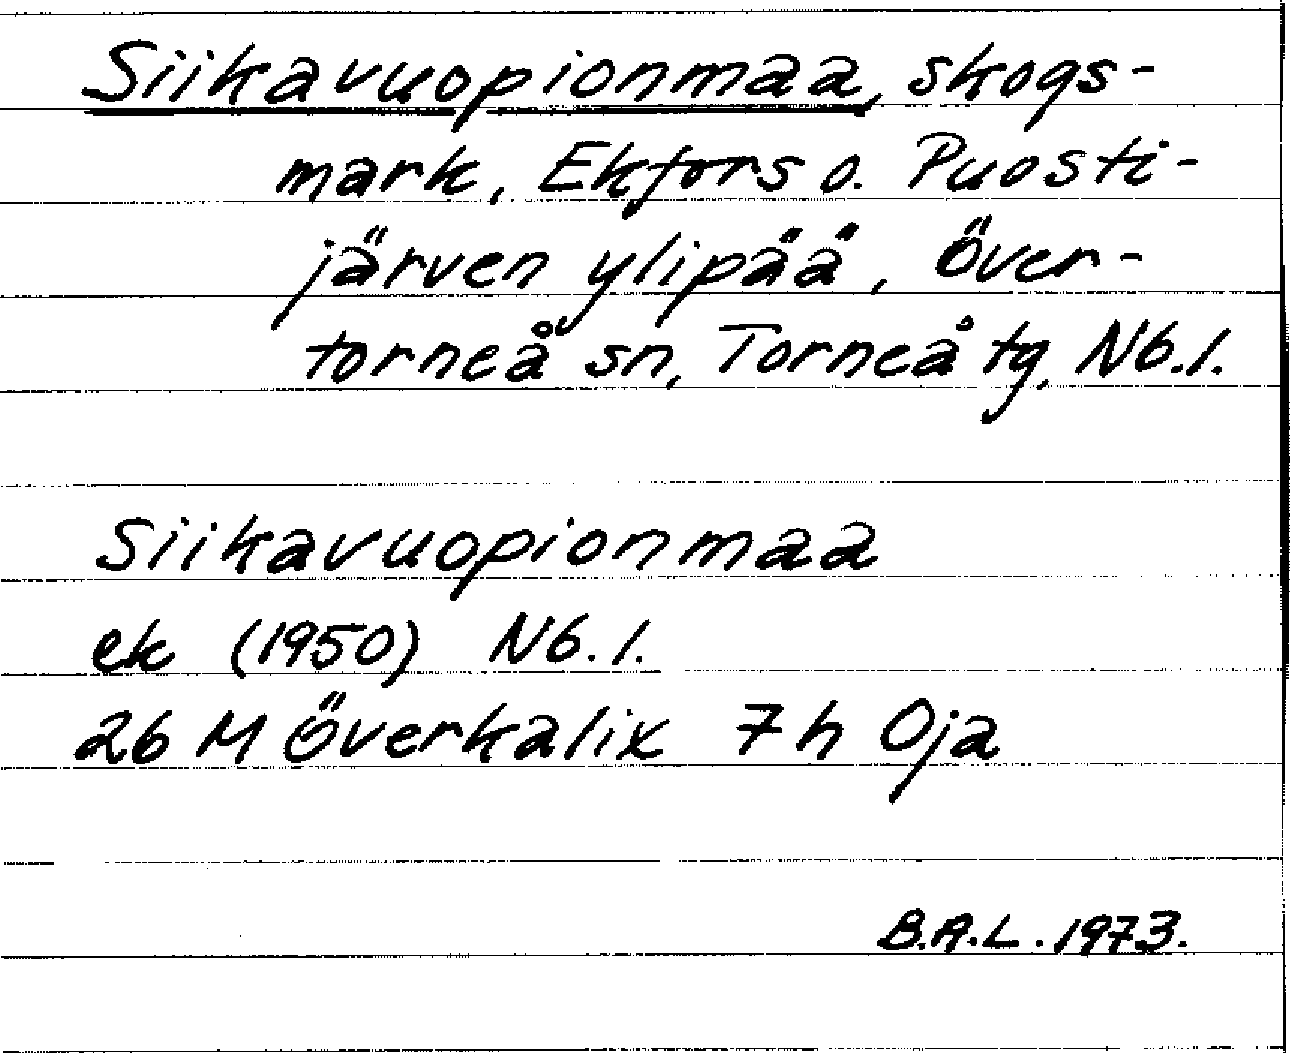 Siikavuopionmaa, skogs-
mark, Ekfors o. Puosti-
järven ylipää, Över-
torneå sn, Torneå tg, Nb.l.
Siikavuopionmaa
ek (1950) Nb.l.
26 M Överkalix 7 h Oja
B.A.L. 1973.